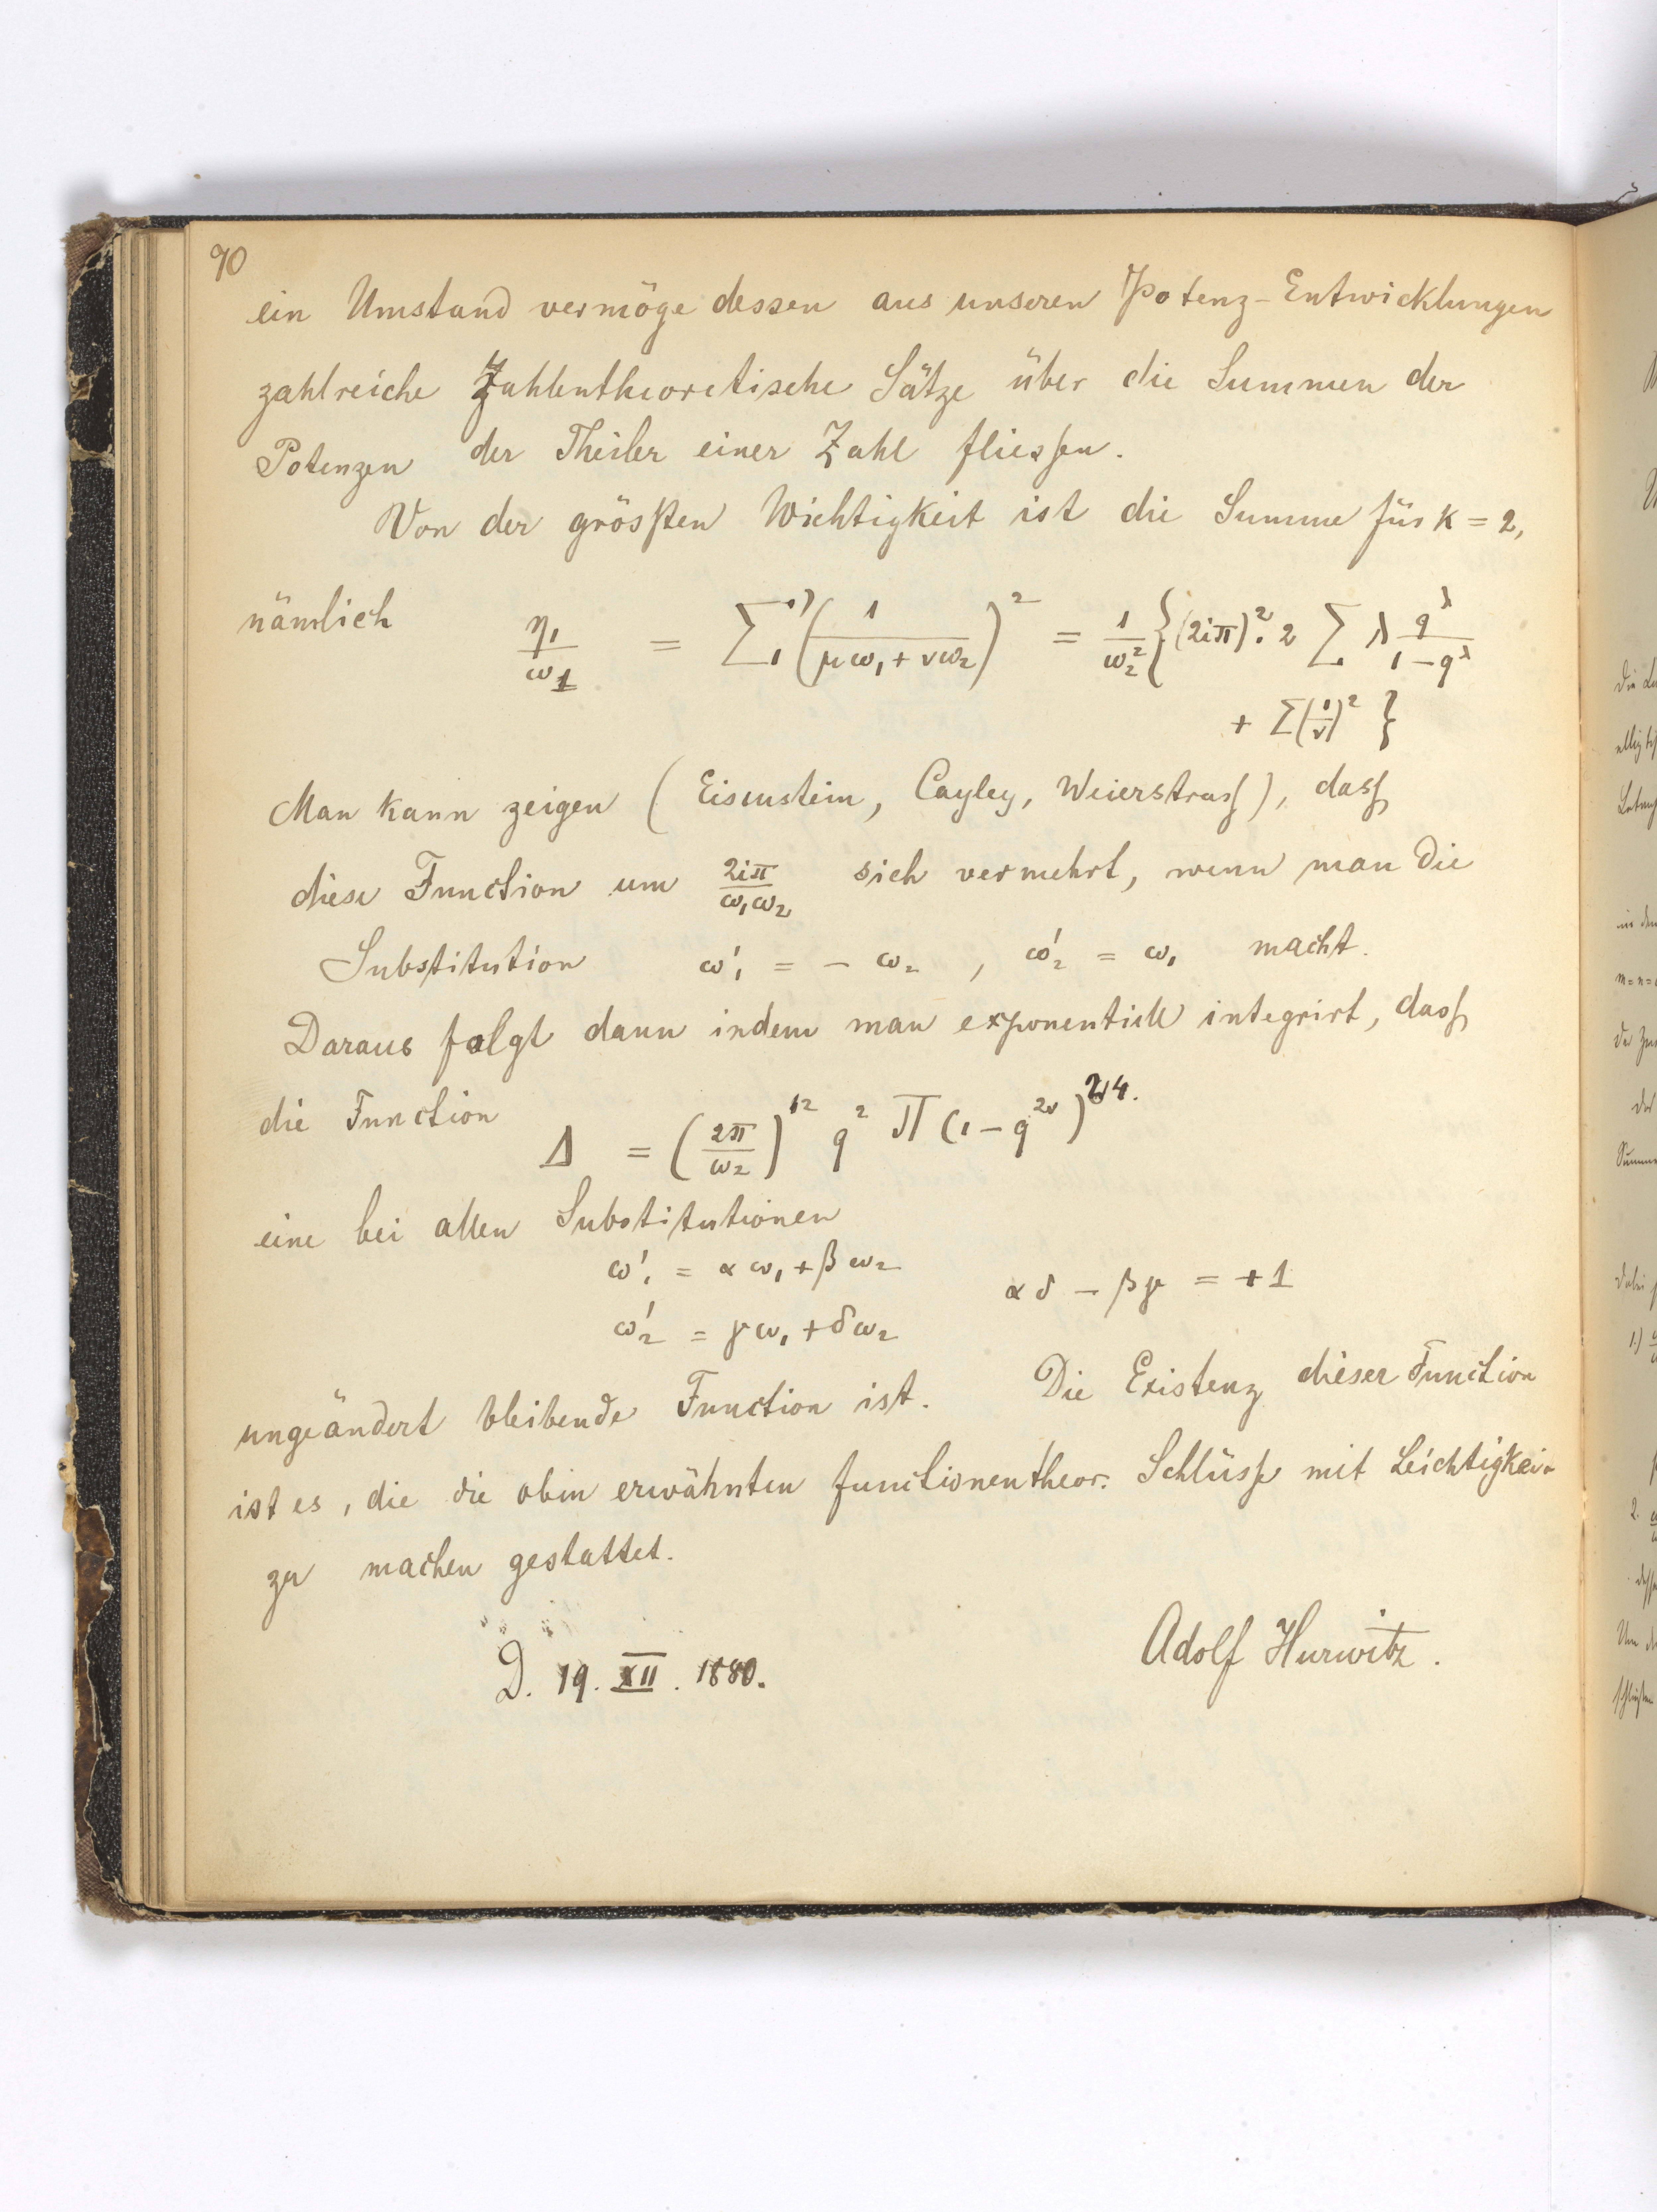 90
ein Umstand vermöge dessen aus unseren Potenz-Entwicklungen
zahlreiche Zahlentheoretische Sätze über die Summen der
Potenzen der Theiler einer Zahl fliessen.
Von der grössten Wichtigkeit ist die Summe für k = 2,
nämlich η₁/ω₁ = Σ'(1/(μω₁+νω₂))² = 1/ω₂² {(2iπ)²·2 Σ λ q^λ/(1−q^λ)
+ Σ(1/ν)² }
Man kann zeigen (Eisenstein, Cayley, Weierstrass), dass
diese Function um 2iπ/ω₁ω₂ sich vermehrt, wenn man die
Substitution ω'₁ = − ω₂ , ω'₂ = ω₁ macht.
Daraus folgt dann indem man exponentiell integrirt, dass
die Function Δ = (2π/ω₂)¹² q² Π(1−q^2ν)²⁴.
eine bei allen Substitutionen
ω'₁ = αω₁+βω₂
αδ − βγ = +1
ω'₂ = γω₁+δω₂
ungeändert bleibende Function ist. Die Existenz dieser Function
ist es, die die oben erwähnten functionentheor. Schlüsse mit Leichtigkei
zu machen gestattet.
D. 19. XII. 1880. Adolf Hurwitz.